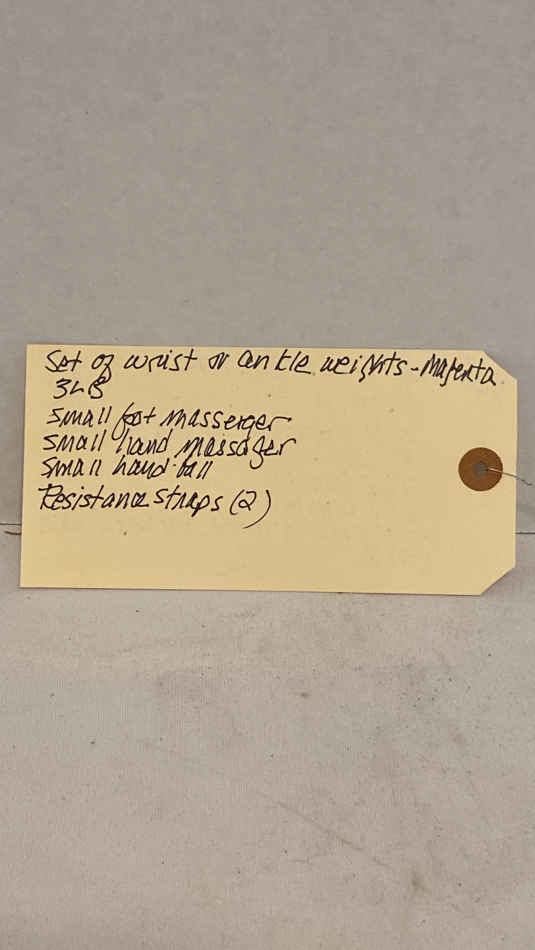 Set of wrist or ankle weights - Majenta
3LB
Small foot masserger
Small hand massager
Small hand ball
Resistance straps (2)